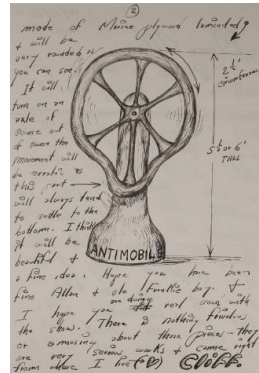 ②
made of Marine plywood laminated
& will be
very rounded as
you can see.
It will
turn on an
axle of
course out
of course the
movement will
be erratic as
this part →
will always tend
to settle to the
bottom. I think
it will be
beautiful &
a fine idea. Hope you have been
fine Allan & ole Frottle boy. &
I hope you are doing real well with
the show. There is nothing frivolous
or amusing about those pieces - they
are very serious works & come right
from where I live
Cliff.
2½'
5½ or 6'
TALL
ANTIMOBILE